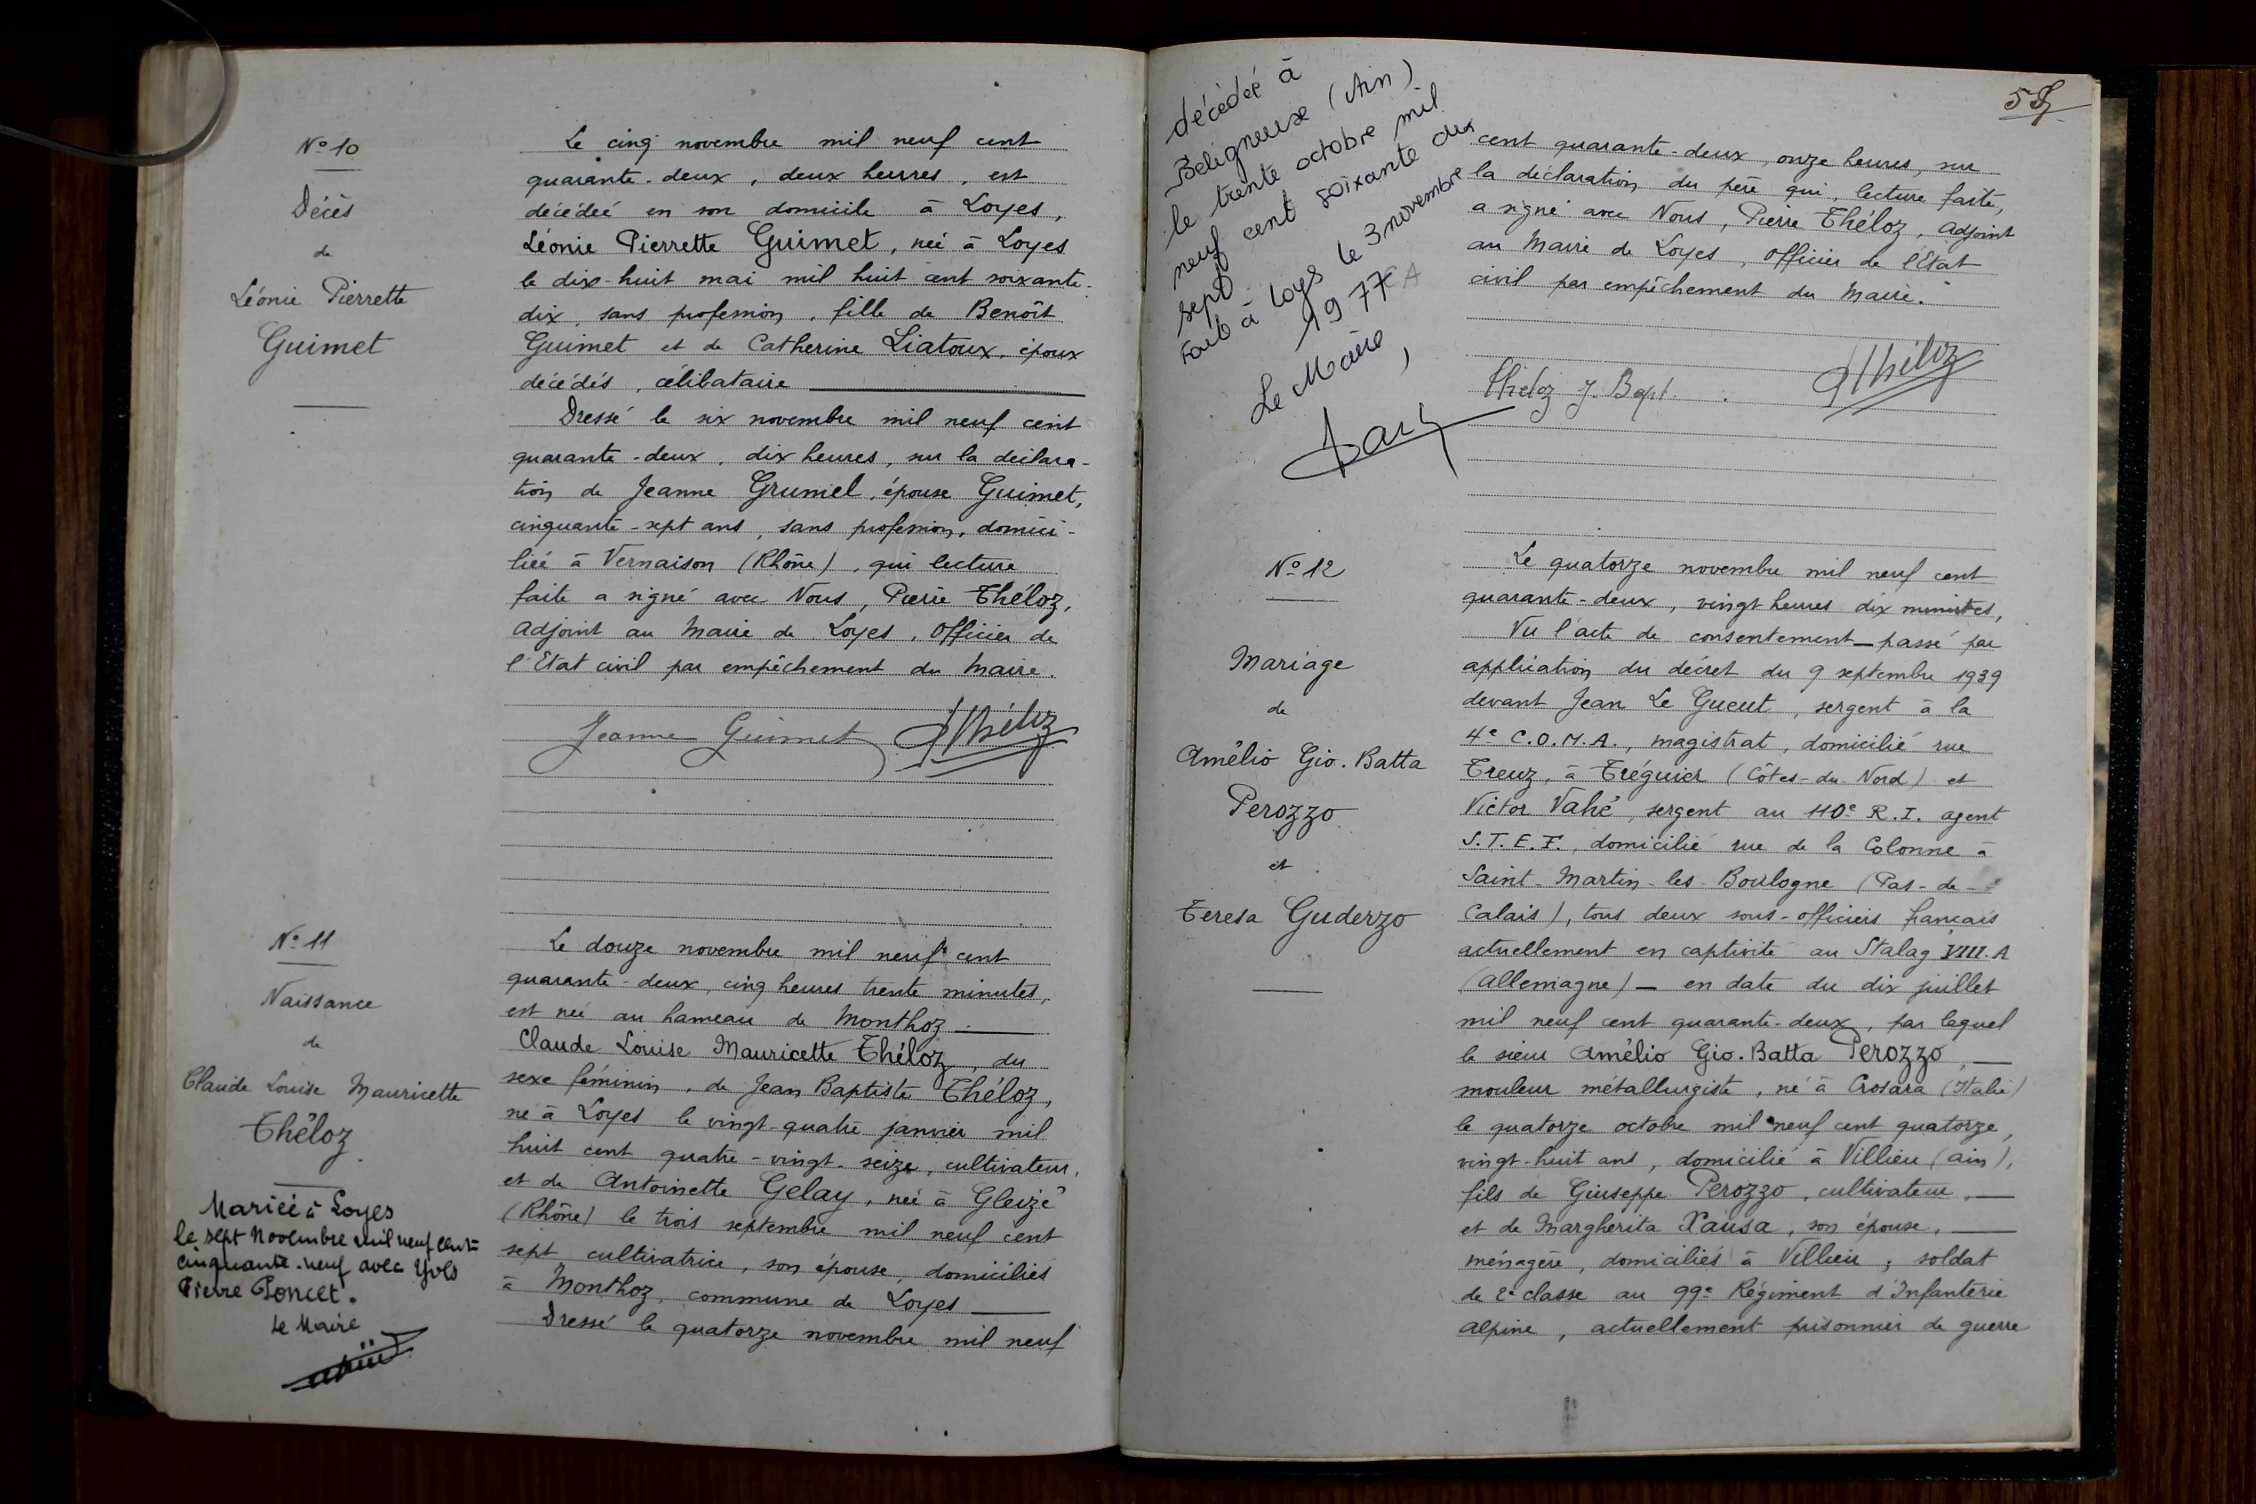 N° 10
Décès
de
Léonie Pierrette
Guimet
Le cinq novembre mil neuf cent
quarante-deux, deux heures, est
décédée en son domicile à Loyes,
Léonie Pierrette Guimet, née à Loyes
le dix-huit mai mil huit cent soixante-
dix, sans profession, fille de Benoît
Guimet et de Catherine Liatoux, époux
décédés, célibataire
Dressé le six novembre mil neuf cent
quarante-deux, dix heures, sur la déclara-
tion de Jeanne Grumel, épouse Guimet,
cinquante-sept ans, sans profession, domici-
liée à Vernaison (Rhône), qui lecture
faite a signé avec Nous, Pierre Théloz,
adjoint au Maire de Loyes, Officier de
l'Etat civil par empêchement du Maire.
Jeanne Guimet Théloz
N° 11
Naissance
de
Claude Louise Mauricette
Théloz
Mariée à Loyes
le sept Novembre mil neuf cent
cinquante-neuf avec Yves
Pierre Poncet.
Le Maire
Le douze novembre mil neuf cent
quarante-deux, cinq heures trente minutes,
est née au hameau de Monthoz
Claude Louise Mauricette Théloz, du
sexe féminin, de Jean Baptiste Théloz,
né à Loyes le vingt-quatre janvier mil
huit cent quatre-vingt-seize, cultivateur,
et de Antoinette Gelay, née à Gleizé
(Rhône) le trois septembre mil neuf cent
sept cultivatrice, son épouse, domiciliés
à Monthoz, commune de Loyes
Dressé le quatorze novembre mil neuf
décédée à
Béligneuse (Ain)
le trente octobre mil
neuf cent soixante dix
sept
Fait à Loyes le 3 novembre
1977
Le Maire,
cent quarante-deux, onze heures, sur
la déclaration du père qui, lecture faite,
a signé avec Nous, Pierre Théloz, adjoint
au Maire de Loyes, Officier de l'Etat
civil par empêchement du Maire.
Théloz J. Bapt. Théloz
N° 12
Mariage
de
Amélio Gio. Batta
Perozzo
et
Teresa Guderzo
Le quatorze novembre mil neuf cent
quarante-deux, vingt heures dix minutes,
Vu l'acte de consentement — passé par
application du décret du 9 septembre 1939
devant Jean Le Gueut, sergent à la
4e C.O.M.A., magistrat, domicilié rue
Treuz, à Tréguier (Côtes-du-Nord) et
Victor Vahé, sergent au 110e R.I. agent
S.T.E.F., domicilié rue de la Colonne à
Saint-Martin-les-Boulogne (Pas-de-
Calais), tous deux sous-officiers français
actuellement en captivité au Stalag VIII.A
(Allemagne) — en date du dix juillet
mil neuf cent quarante-deux, par lequel
le sieur Amélio Gio. Batta Perozzo,
mouleur métallurgiste, né à Crosara (Italie)
le quatorze octobre mil neuf cent quatorze,
vingt-huit ans, domicilié à Villieu (Ain),
fils de Giuseppe Perozzo, cultivateur,
et de Margherita Xausa, son épouse,
ménagère, domiciliés à Villieu, soldat
de 2e classe au 99e Régiment d'Infanterie
alpine, actuellement prisonnier de guerre